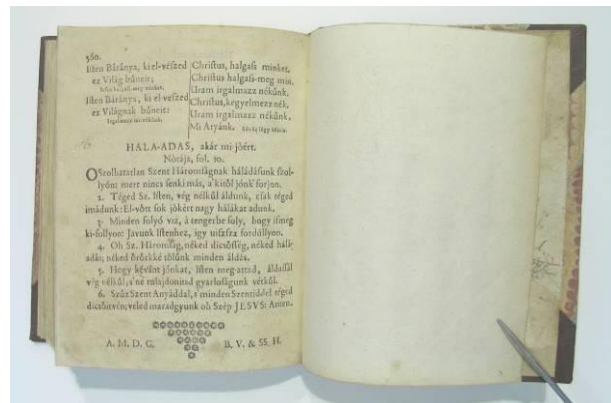 360.
Isten Báránya, ki el-vészed
ez Világ bűneit;
Isten Báránya, ki el-vészed
ez Világnak bűneit:
Irgalmazz mi-nékünk.
Christus, halgass minket.
Christus halgass-meg min.
Uram irgalmazz nékünk.
Christus, kegyelmezz nék.
Uram irgalmazz nékünk,
Mi Atyánk.
HALA-ADAS, akár mi-jóért.
Nótája, fol. 10.
OSzolhatatlan Szent Háromságnak háládásunk szol-
lyon: mert nincs senki más, a' kitől jónk forjon.
2. Téged Sz. Isten, vég nélkül áldunk, csak téged
imádunk: El-vött sok jókért nagy hálákat adunk.
3. Minden folyó viz, à tengerbe foly, hogy ismeg
ki-follyon: Javunk Istenhez, igy viszsza fordúllyon.
4. Oh Sz. Háromság, néked dicsősség, néked hálá-
adás; néked örökké tőlünk minden áldás.
5. Hogy kévánt jónkat, Isten meg-attad, áldassál
vég nélkül; s' né tulajdonitsd gyarlóságunk vétkül.
6. Szűz Szent Anyáddal, s minden Szentiddel téged
dicsöitvén; veled maradgyunk oh Szép JESVS: Amen.
A. M. D. G. B. V. & SS. H.